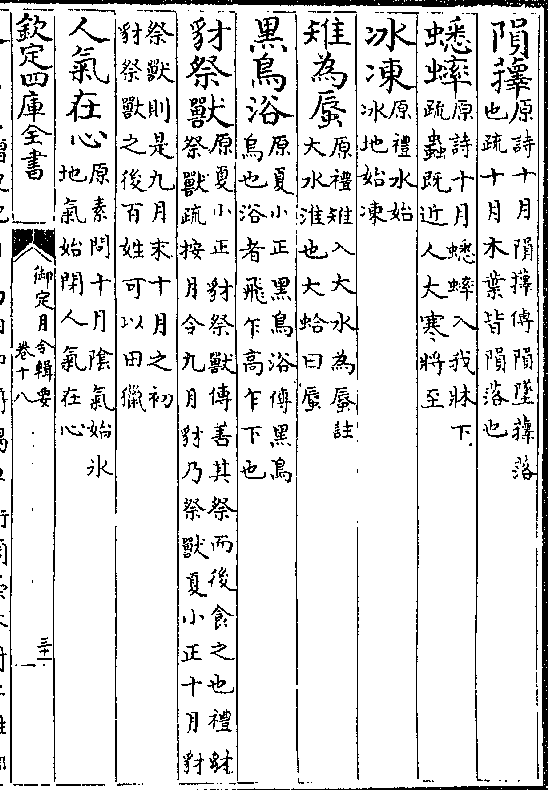 隕蘀原詩十月隕蘀傳隕墜蘀落
也疏十月木葉皆隕落也
蟋蟀原詩十月蟋蟀入我牀下
疏蟲既近人大寒將至
冰凍原禮水始
冰地始凍
雉為蜃原禮雉入大水為蜃註
大水淮也大蛤曰蜃
黑鳥浴原夏小正黑鳥浴傳黑鳥
鳥也浴者飛乍高乍下也
豺祭獸原夏小正豺祭獸傳善其祭而後食之也禮豺
祭獸疏按月令九月豺乃祭獸夏小正十月豺
祭獸則是九月末十月之初
豺祭獸之後百姓可以田獵
人氣在心原素問十月陰氣始氷
地氣始閉人氣在心
欽定四庫全書
御定月令輯要
卷十八
三十一